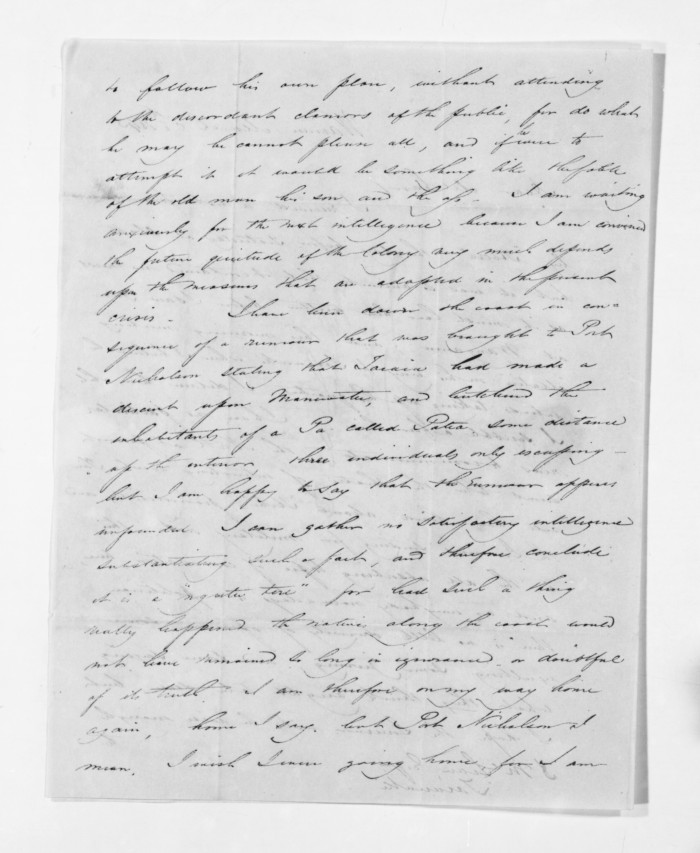 to follow his own plan, without attending
to the discordant clamors of the public, for do what
he may he cannot please all, and if he were to
attempt it it would be something like the fable
of the old man his son and the ass. I am waiting
anxiously for the next intelligence because I am convinced
the future quietude of the Colony very much depends
upon the measures that are adopted in the present
crisis - I have been down the coast in con=
sequence of a rumour that was brought to Port
Nicholson stating that Taraia had made a
descent upon Manawatu, and butchered the
inhabitants of a Pa called Patea some distance
up the interior, three individuals only escaping -
but I am happy to say that the rumour appears
unfounded. I can gather no satisfactory intelligence
substantiating such a fact, and therefore conclude
it is a "ngutu tere" for had such a thing
really happened the natives along the coast would
not have remained so long in ignorance or doubtful
of its truth. I am therefore on my way home
again, home I say. but Port Nicholson I
mean. I wish I were going home for I am
Taranaki